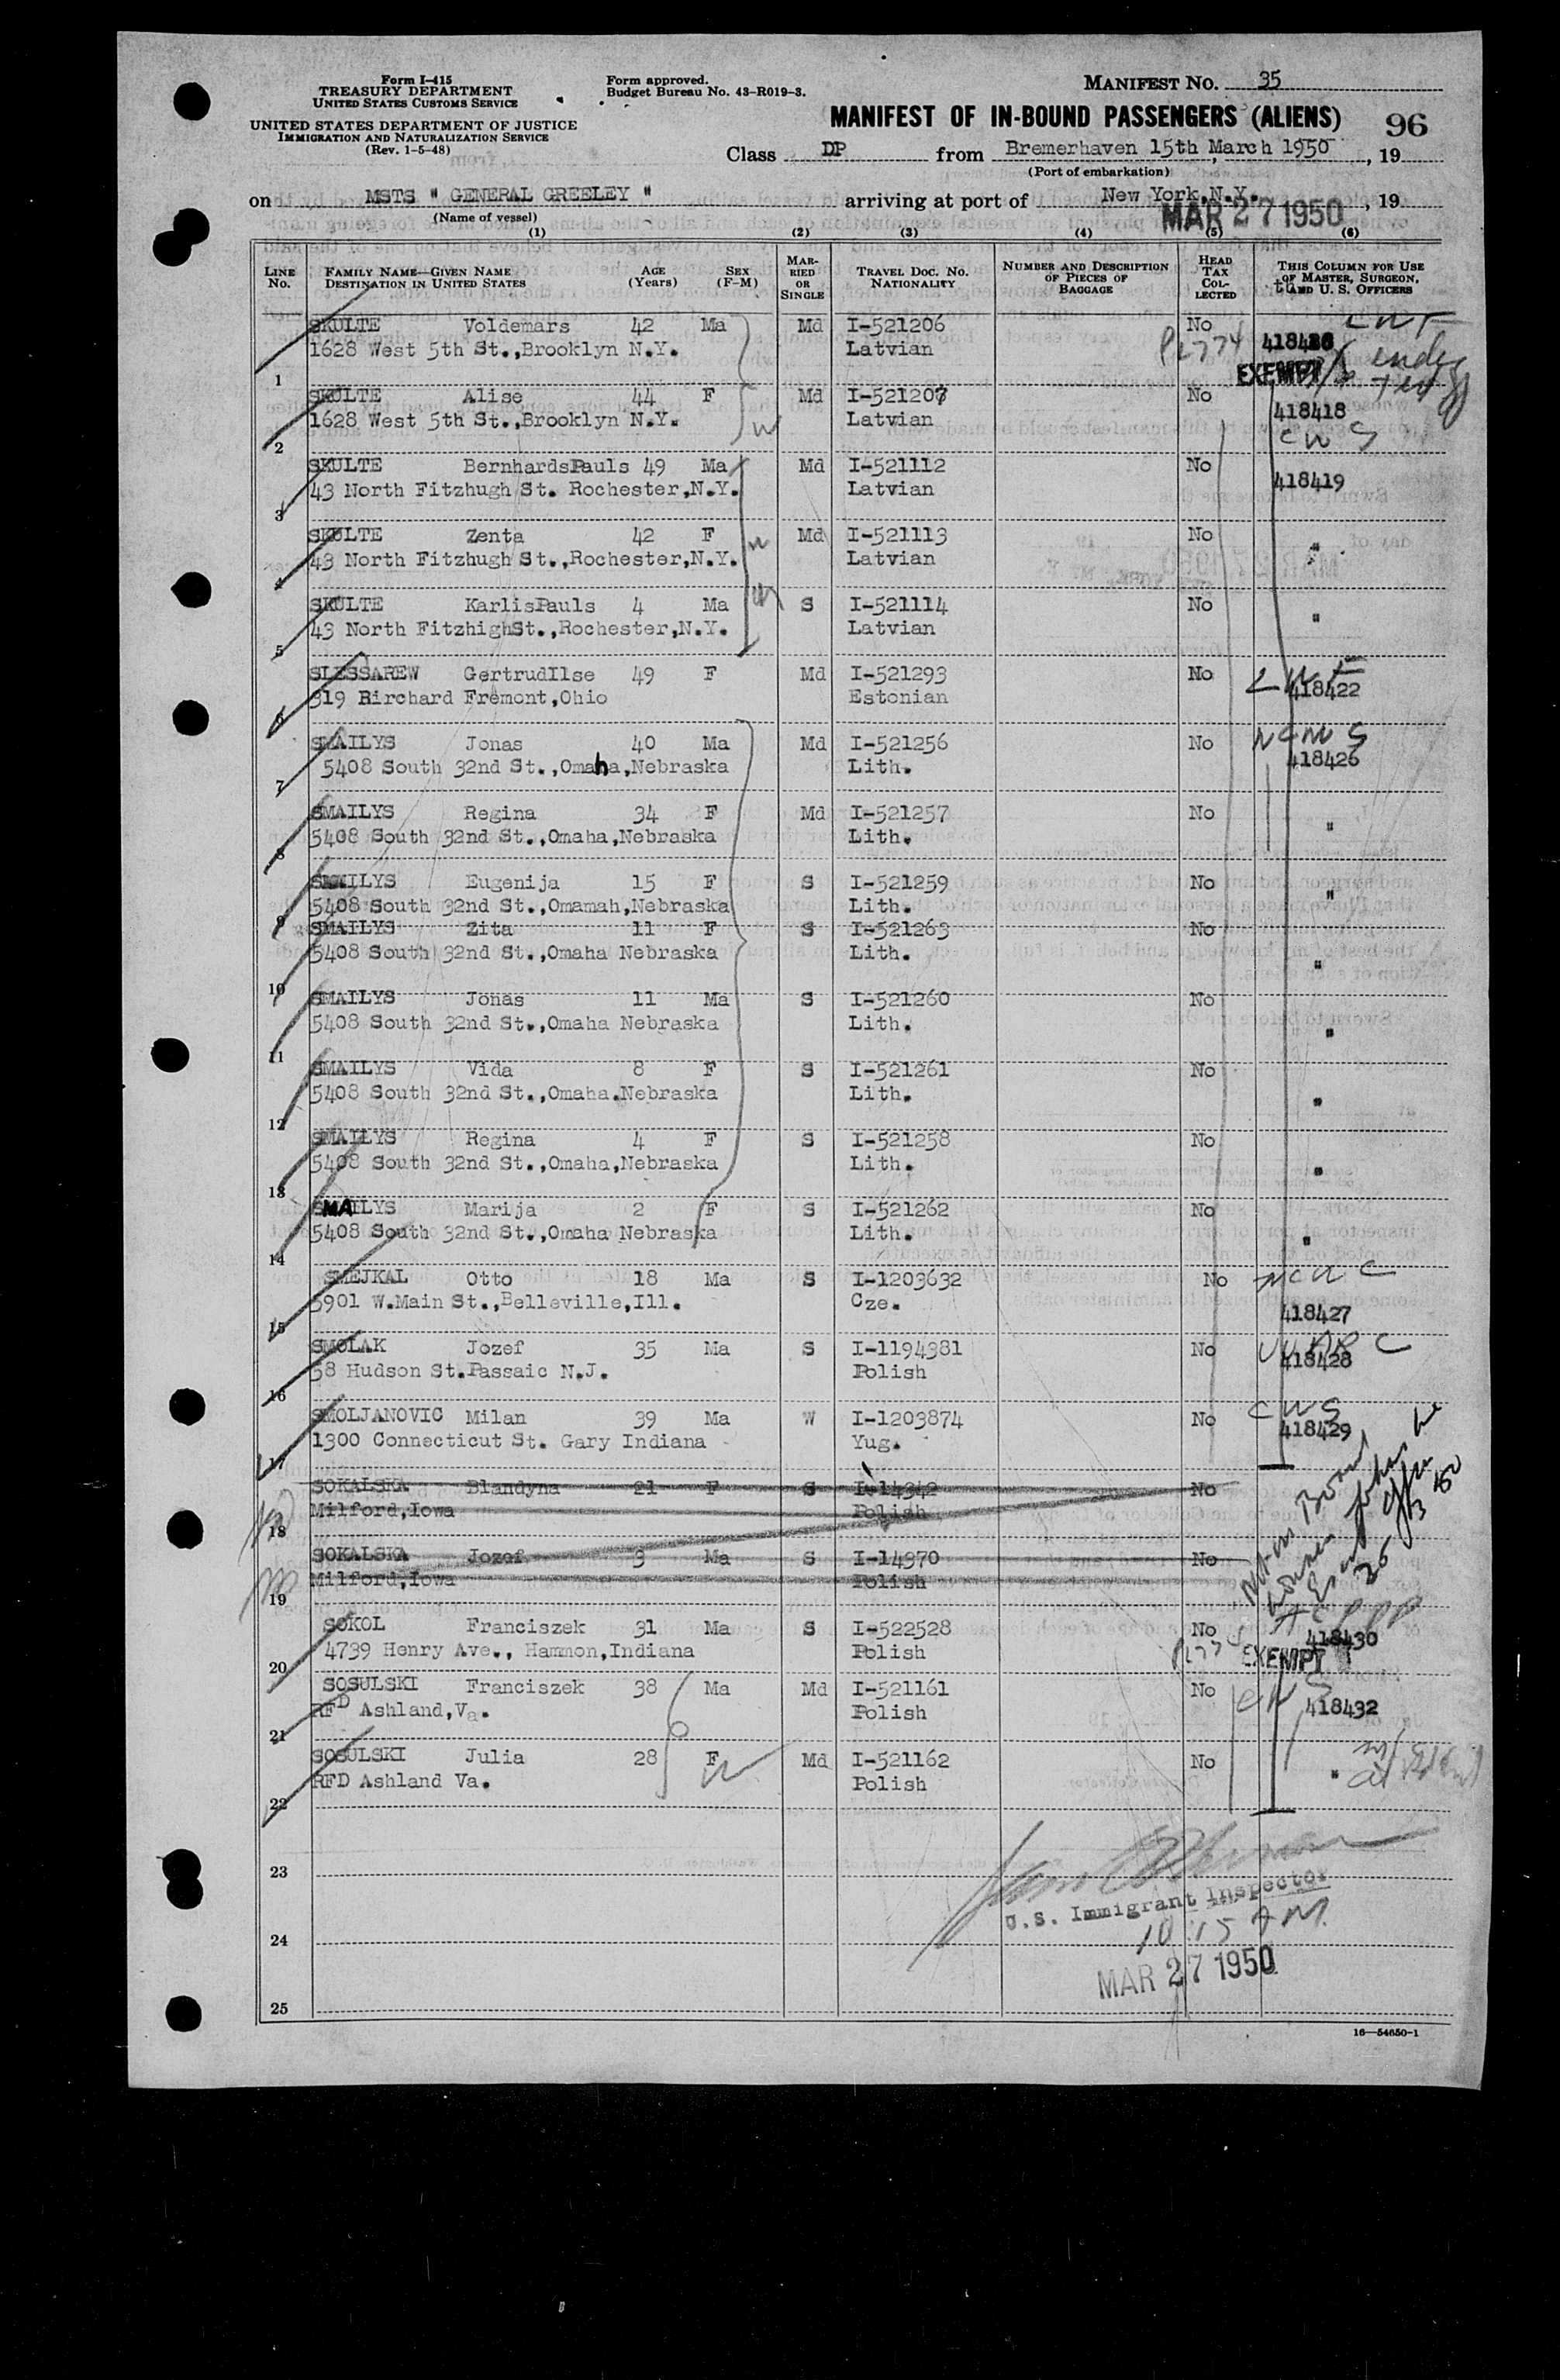 Form I-415
TREASURY DEPARTMENT
UNITED STATES CUSTOMS SERVICE
UNITED STATES DEPARTMENT OF JUSTICE
IMMIGRATION AND NATURALIZATION SERVICE
(Rev. 1-5-48)
Form approved.
Budget Bureau No. 43-R019-3.
MANIFEST No. 35
MANIFEST OF IN-BOUND PASSENGERS (ALIENS) 96
Class DP from Bremerhaven 15th March 1950, 19
(Port of embarkation)
on MSTS " GENERAL GREELEY " arriving at port of New York,N.Y., 19
(Name of vessel)
MAR 27 1950
(1) (2) (3) (4) (5) (6)
LINE No. FAMILY NAME—GIVEN NAME DESTINATION IN UNITED STATES AGE (Years) SEX (F-M) MARRIED OR SINGLE TRAVEL DOC. NO. NATIONALITY NUMBER AND DESCRIPTION OF PIECES OF BAGGAGE HEAD TAX COLLECTED THIS COLUMN FOR USE OF MASTER, SURGEON, AND U. S. OFFICERS
SKULTE Voldemars 42 Ma Md I-521206 No LWF
1628 West 5th St.,Brooklyn N.Y. Latvian
1 EXEMPT
SKULTE Alise 44 F Md I-521207 No
1628 West 5th St.,Brooklyn N.Y. Latvian 418418
2 CWS
SKULTE BernhardsPauls 49 Ma Md I-521112 No
43 North Fitzhugh St. Rochester,N.Y. Latvian 418419
3
SKULTE Zenta 42 F Md I-521113 No
43 North Fitzhugh St.,Rochester,N.Y. Latvian "
4
SKULTE KarlisPauls 4 Ma S I-521114 No
43 North FitzhighSt.,Rochester,N.Y. Latvian "
5
SLESSAREW GertrudIlse 49 F Md I-521293 No LWF
319 Birchard Fremont,Ohio Estonian 418422
6
SMAILYS Jonas 40 Ma Md I-521256 No NCWS
5408 South 32nd St.,Omaha,Nebraska Lith. 418426
7
SMAILYS Regina 34 F Md I-521257 No
5408 South 32nd St.,Omaha,Nebraska Lith. "
8
SMAILYS Eugenija 15 F S I-521259 No
5408 South 32nd St.,Omamah,Nebraska Lith. "
9
SMAILYS Zita 11 F S I-521263 No
5408 South 32nd St.,Omaha Nebraska Lith. "
10
SMAILYS Jonas 11 Ma S I-521260 No
5408 South 32nd St.,Omaha Nebraska Lith. "
11
SMAILYS Vida 8 F S I-521261 No
5408 South 32nd St.,Omaha.Nebraska Lith. "
12
SMAILYS Regina 4 F S I-521258 No
5408 South 32nd St.,Omaha,Nebraska Lith. "
13
SMAILYS Marija 2 F S I-521262 No
5408 South 32nd St.,Omaha Nebraska Lith. "
14
SMEJKAL Otto 18 Ma S I-1203632 No NCWC
5901 W.Main St.,Belleville,Ill. Cze. 418427
15
SMOLAK Jozef 35 Ma S I-1194381 No
58 Hudson St.Passaic N.J. Polish 418428
16
SMOLJANOVIC Milan 39 Ma W I-1203874 No CWS
1300 Connecticut St. Gary Indiana Yug. 418429
17
SOKALSKA Blandyna 21 F S I-14342 No
Milford,Iowa Polish
18
SOKALSKA Jozef 3 Ma S I-14370 No
Milford,Iowa Polish
19
SOKOL Franciszek 31 Ma S I-522528 No
4739 Henry Ave., Hammon,Indiana Polish 418430
20 EXEMPT
SOSULSKI Franciszek 38 Ma Md I-521161 No
RFD Ashland,Va. Polish 418432
21
SOSULSKI Julia 28 F Md I-521162 No
RFD Ashland Va. Polish "
22
23
U.S. Immigrant Inspector
10 15 AM
24
MAR 27 1950
25
16—54650-1